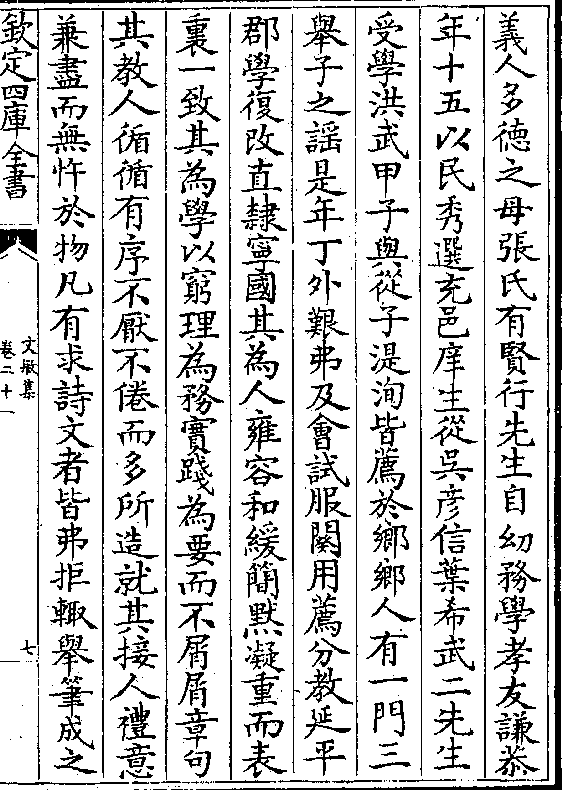 義人多徳之母張氏有賢行先生自幼務學孝友謙恭
年十五以民秀選充邑庠生從吳彦信葉希武二先生
受學洪武甲子與從子湜洵皆薦於鄉鄉人有一門三
舉子之謡是年丁外艱弗及會試服闋用薦分教延平
郡學復改直隸寧國其為人雍容和緩簡默凝重而表
裏一致其為學以窮理為務實踐為要而不屑屑章句
其教人循循有序不厭不倦而多所造就其接人禮意
兼盡而無忤於物凡有求詩文者皆弗拒輙舉筆成之
欽定四庫全書
文敏集
卷二十一
七